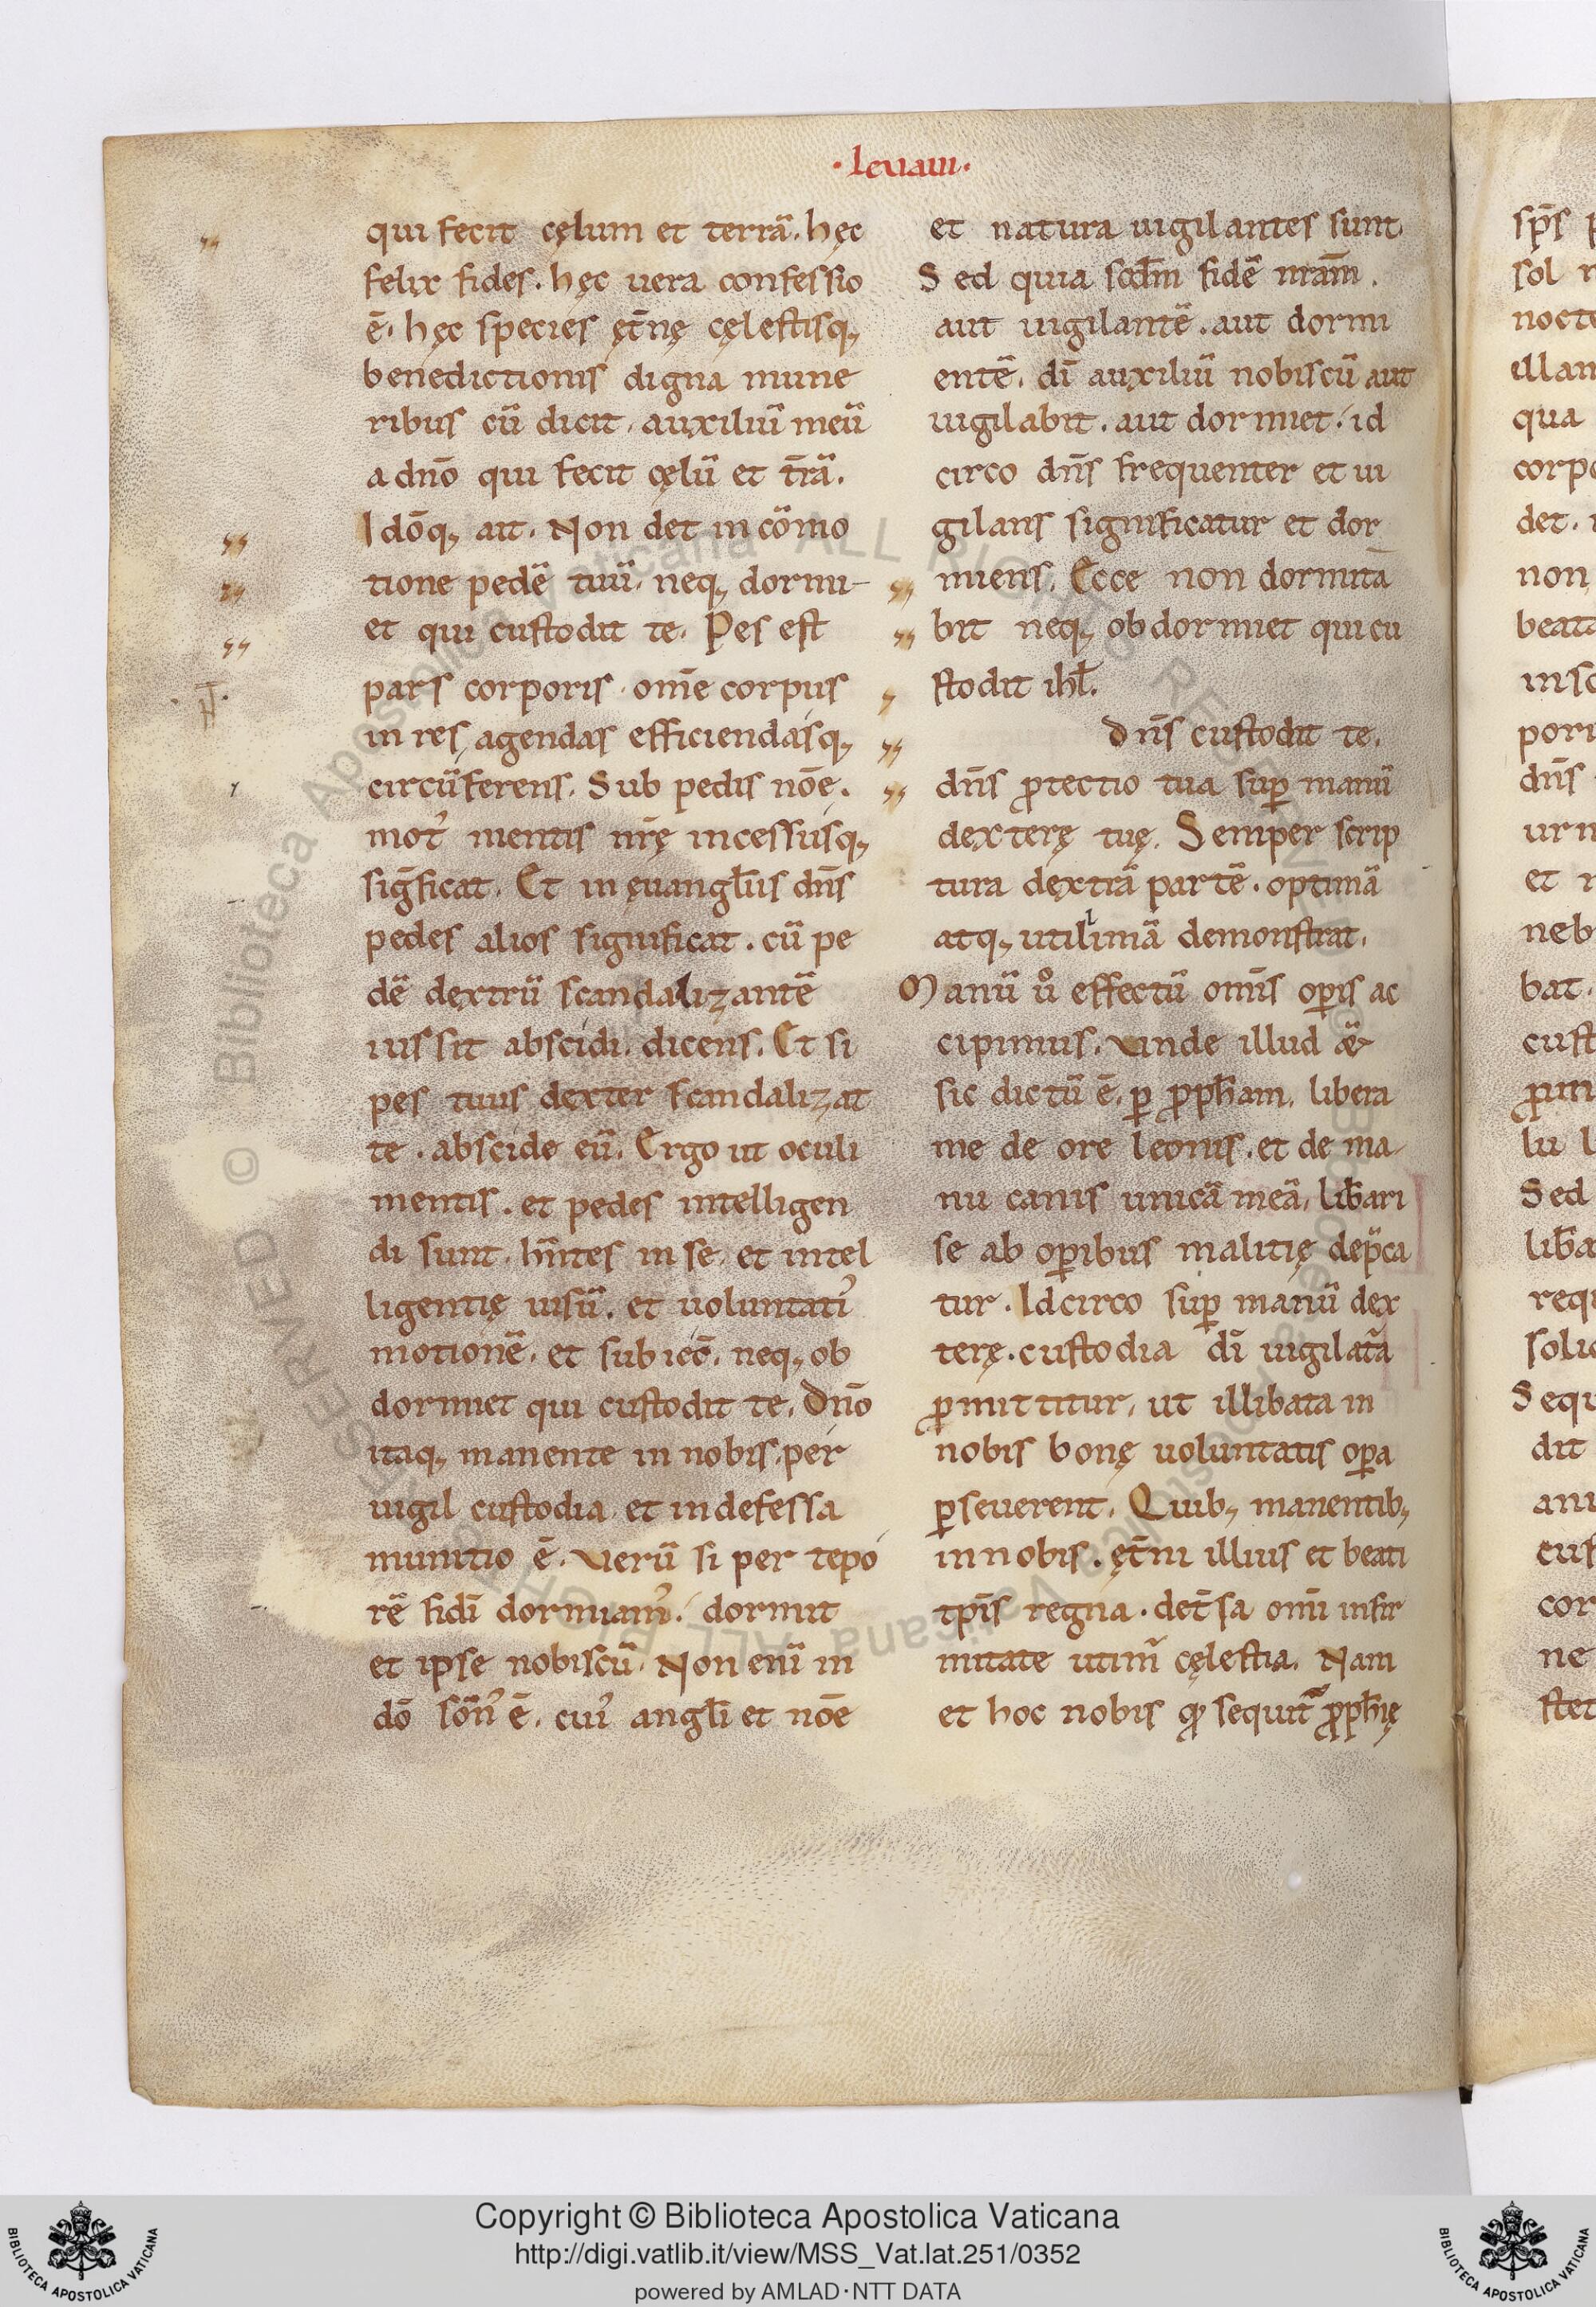 ·Leuaui·
qui fecit cęlum et terrā. hęc
felix fides. hęc uera confessio
ē. hęc species ęt̄nę cęlestisq;
benedictionis digna mune
ribus cū dicit. auxiliū meū
a dn̄o qui fecit cęlū et t̄rā.
Idōq; ait. Non det in cōmo
tione pedē tuū. neq; dormi-
et qui custodit te. Pes est
pars corporis om̄e corpus
in res agendas efficiendasq;
circūferens. Sub pedis nōe.
mot᾽ mentis nr̄ę incessusq;
siḡficat. Et in ęuangl̄iis dn̄s
pedes alios significat. cū pe
dē dextrū scandalizantē
iussit abscidi. dicens. Et si
pes tuus dexter scandalizat
te. abscide eū. Ergo ut oculi
mentis. et pedes intelligen
di sunt. hn̄tes in se et intel
ligentię uisū. et uoluntati᾽
motionē. et subiec̄. neq; ob
dormiet qui custodit te. Dn̄o
itaq; manente in nobis. per
uigil custodia et indefessa
munitio ē. Verū si per tepo
rē fidī dormiam᾽. dormit
et ipse nobiscū. Non enī in
dō som̄n᾽ ē. cui᾽ angl̄i et nōe
et natura uigilantes sunt.
Sed quia scd̄m fidē nr̄am.
aut uigilantē. aut dormi
entē. dī auxiliū nobiscū aut
uigilabit. aut dormiet. id
circo dn̄s frequenter et ui
gilans significatur et dor
miens. Ecce non dormita
bit neq; obdormiet qui cu
stodit ihl̄.
Dn̄s custodit te.
dn̄s ꝓtectio tua suꝑ manū
dexterę tuę. Semper scrip
tura dextrā partē. optimā
atq; utilimā demonstrat.
Manū uͦ effectū om̄is oꝑis ac
cipimus. Vnde illud &
sic dictū ē. ꝑ ꝓph̄am. libera
me de ore leonis. et de ma-
nu canis unicā meā. lib̄ari
se ab oꝑibus malitię dep̄ca
tur. Idcirco suꝑ manū dex
terę. custodia dī uigilatā
ꝓmittitur. ut illibata in
nobis bonę uoluntatis oꝑa
ꝑseuerent. Quib; manentib;
in nobis. ęt̄ni illius et beati
tp̄is regna. det̄sa om̄i infir
mitate utim̄ cęlestia. Nam
et hoc nobis ꝙ sequit̄ ꝓph̄ię
Copyright © Biblioteca Apostolica Vaticana
http://digi.vatlib.it/view/MSS_Vat.lat.251/0352
powered by AMLAD·NTT DATA
BIBLIOTECA APOSTOLICA VATICANA
BIBLIOTECA APOSTOLICA VATICANA